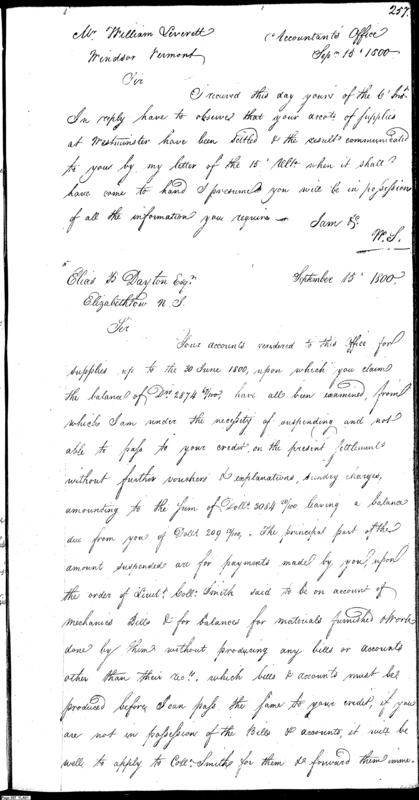 257.
Mr William Leverett (Accountants Office
Windsor Vermont Sepr 15th 1800
Sir
I received this day yours of the 6th Inst.
In reply have to observe that your accots of supplies
at Westminster have been settled & the result communicated
to you by my letter of the 15th Ulto when it shall
have come to hand I presume you will be in possession
of all the information you require — I am &c.
W. S.
Elias B Dayton Esqr September 15th 1800.
Elizabethtow N. J.
Sir
Your accounts rendered to this Office for
supplies up to the 30 June 1800, upon which you claim
the balance of Drs 2874 /100, have all been examined, from
which I am under the necessity of suspending and not
able to pass to your credit, on the present settlement
without further vouchers & explanations, sundry charges,
amounting to the sum of Dolls 3084 /100 leaving a balance
due from you of Dolls 209 /100. - The principal part of the
amount suspended are for payments made by you, upon
the order of Lieut. Coll. Smith said to be on account of
Mechanics Bills & for balances for materials furnished & work
done by them without producing any bills or accounts
other than their recte. which bills & accounts must be
produced before I can pass the same to your credit, if you
are not in possession of the Bills & accounts, it will be
well to apply to Coll. Smith for them & forward them imme-